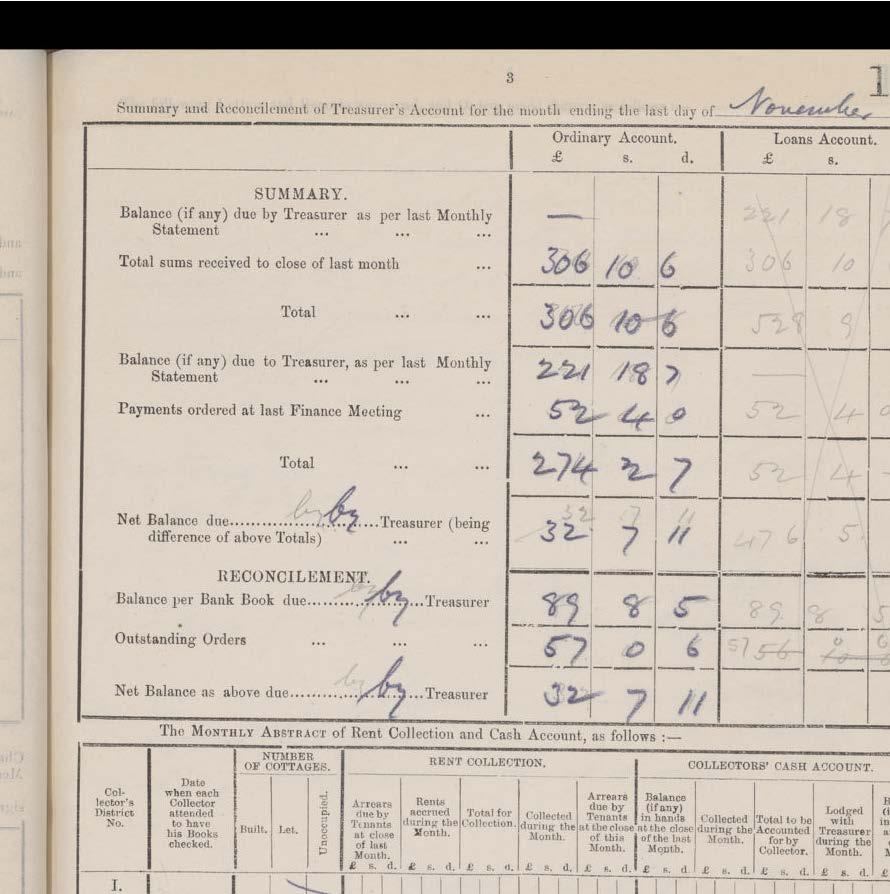 3
1
Summary and Reconcilement of Treasurer's Account for the month ending the last day of November
Ordinary Account. Loans Account.
£ s. d. £ s.
SUMMARY.
Balance (if any) due by Treasurer as per last Monthly
Statement ... ... ... — 221 18
Total sums received to close of last month ... 306 10 6 306 10
Total ... ... 306 10 6 528 9
Balance (if any) due to Treasurer, as per last Monthly
Statement ... ... ... 221 18 7 —
Payments ordered at last Finance Meeting ... 52 4 0 52 4 0
Total ... ... 274 2 7 52 4 -
32 7 11
Net Balance due......by by......Treasurer (being
difference of above Totals) ... ... 32 7 11 476 5
RECONCILEMENT.
Balance per Bank Book due......by by......Treasurer 89 8 5 89 8 5
Outstanding Orders ... ... ... 57 0 6 57 56 0 10 6
Net Balance as above due......by by......Treasurer 32 7 11
The MONTHLY ABSTRACT of Rent Collection and Cash Account, as follows :—
Collector's District No.
Date when each Collector attended to have his Books checked.
NUMBER OF COTTAGES.
Built. Let. Unoccupied.
RENT COLLECTION.
Arrears due by Tenants at close of last Month.
Rents accrued during the Month.
Total for Collection.
Collected during the Month.
Arrears due by Tenants at the close of this Month.
COLLECTORS' CASH ACCOUNT.
Balance (if any) in hands at the close of the last Month.
Collected during the Month.
Total to be Accounted for by Collector.
Lodged with Treasurer during the Month.
£ s. d. £ s. d. £ s. d. £ s. d. £ s. d. £ s. d. £ s. d. £ s. d. £ s. d. £
I.